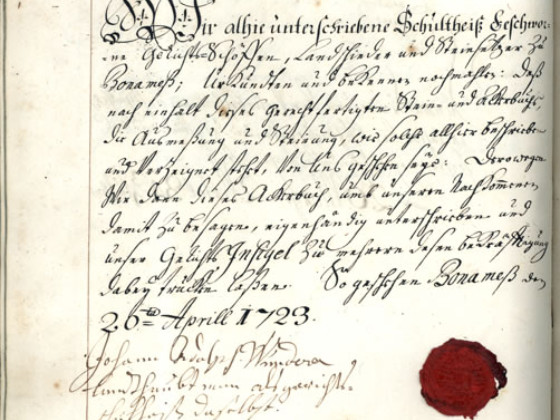 Wir alhie unterschriebene Schultheiß Geschwor-
ne Gerichts-Schöffen, Landschieder und Steinsetzer zu
Bonameß; Urkunden und bekennen nochmahls: daß
nach einhalt dieses gerechtfertigten Stein- und Ackerbuchs,
die Ausmeßung und Steinung, wie solche allhier beschrieben
und verzeignet steht, von Uns geschehen seye: Derowegen
Wir dann dieses Ackerbuch, umb unseren Nachkommenen
damit zu besagen, eigenhändig unterschrieben und
unser Gerichts Insigel zu mehrern dessen bekräfftigung
dabey trucken laßen. So geschehen Bonameß den
26ten Aprill 1723.
Johann
Landhaubtman
Schultheiß daselbst.